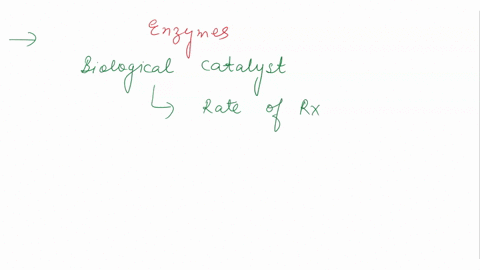 → Enzymes
Biological catalyst
↳ Rate of Rx